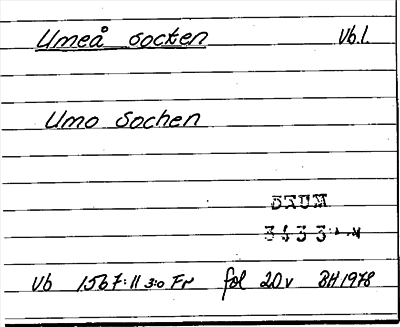 Umeå socken Vb.l.
Umo Sochen
DAUM
3433
Vb 1567:11 3:0 Fr fol 20v BH 1978